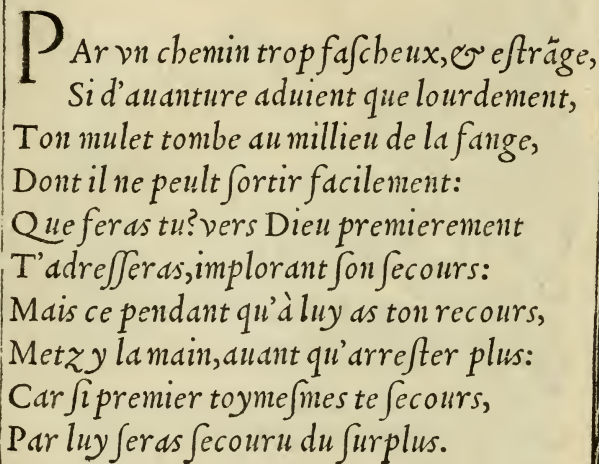 PAr vn chemin trop faſcheux,& eſtrãge,
Si d'auanture aduient que lourdement,
Ton mulet tombe au millieu de la fange,
Dont il ne peult ſortir facilement:
Que feras tu? vers Dieu premierement
T'adreſſeras, implorant ſon ſecours:
Mais ce pendant qu'à luy as ton recours,
Metz y la main, auant qu'arreſter plus:
Car ſi premier toymeſmes te ſecours,
Par luy ſeras ſecouru du ſurplus.